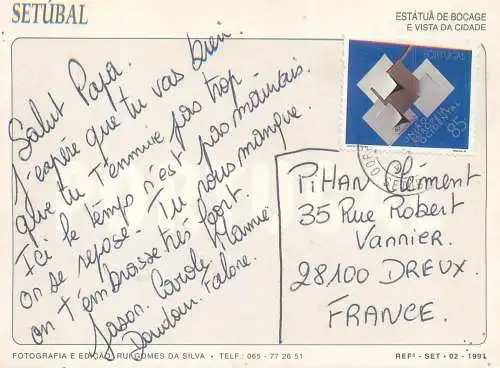 SETÚBAL
ESTÁTUA DE BOCAGE
E VISTA DA CIDADE
Salut Papa.
J'espère que tu vas bien.
que tu t'ennuie pas trop
Ici le temps n'est pas mauvais.
on se repose. Tu nous manque.
on t'embrasse très fort.
Jason. Carole. Mamie
Doudou.
PORTUGAL
85
PiHAN Clément
35 Rue Robert
Vannier.
28100 DREUX.
FRANCE.
FOTOGRAFIA E EDIÇÃO RUI GOMES DA SILVA • TELF.: 065 - 77 26 51
REFª - SET - 02 - 1991